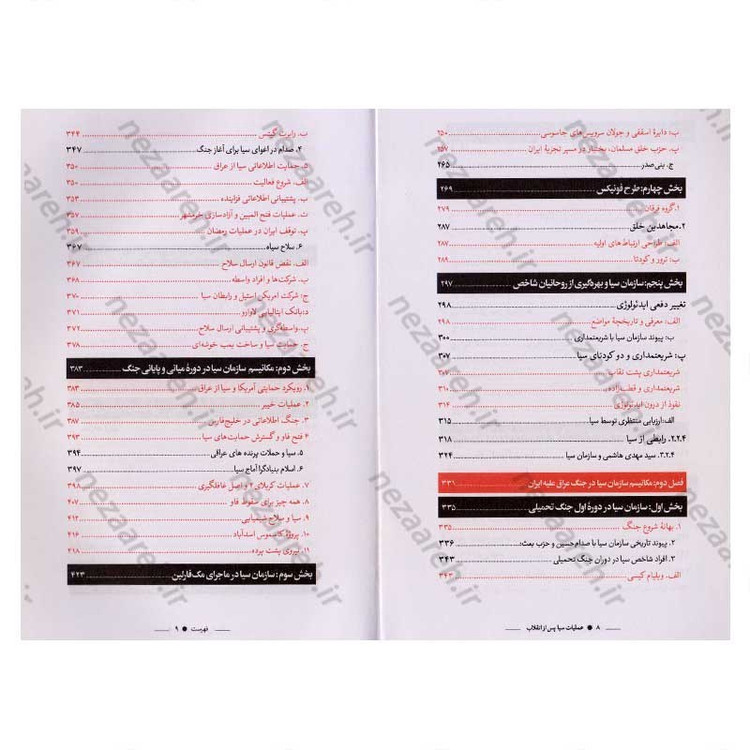 پ: دایرهٔ اسقفی و جولان سرویس‌های جاسوسی ۲۵۰
پ: حزب خلق مسلمان، بختیار در مسیر تجزیهٔ ایران ۲۵۷
ج. بنی‌صدر ۲۶۵
بخش چهارم: طرح فونیکس ۲۶۹
۱.گروه فرقان ۲۷۹
۲.مجاهدین خلق ۲۸۷
الف: طراحی ارتباط‌های اولیه ۲۸۷
ب: ترور و کودتا ۲۸۹
بخش پنجم: سازمان سیا و بهره‌گیری از روحانیان شاخص ۲۹۷
تغییر دفعی ایدئولوژی ۲۹۸
الف: معرفی و تاریخچهٔ مواضع ۲۹۸
ب: پیوند سازمان سیا با شریعتمداری ۳۰۰
پ: شریعتمداری و دو کودتای سیا ۳۰۷
شریعتمداری پشت نقاب ۳۱۰
شریعتمداری و قطب‌زاده ۳۱۰
نفوذ از درون ایدئولوژی ۳۱۴
الف:ارزیابی منتظری توسط سیا ۳۱۵
۲.۲.۴. رابطی از سیا ۳۱۸
۳.۲.۴. سید مهدی هاشمی و سازمان سیا ۳۲۴
فصل دوم: مکانیسم سازمان سیا در جنگ عراق علیه ایران ۳۳۱
بخش اول: سازمان سیا در دورهٔ اول جنگ تحمیلی ۳۳۵
۱. بهانهٔ شروع جنگ ۳۳۵
۲. پیوند تاریخی سازمان سیا با صدام‌حسین و حزب بعث: ۳۳۶
۳. افراد شاخص سیا در دوران جنگ تحمیلی ۳۴۳
الف. ویلیام کیسی ۳۴۳
۸ ● عملیات سیا پس از انقلاب
ب. رابرت گیتس ۳۴۴
۴. صدام در اغوای سیا برای آغاز جنگ ۳۴۷
۵. حمایت اطلاعاتی سیا از عراق ۳۵۰
الف. شروع فعالیت ۳۵۰
ب. پشتیبانی اطلاعاتی فزاینده ۳۵۳
ت. عملیات فتح المبین و آزادسازی خرمشهر ۳۵۷
پ. توقف ایران در عملیات رمضان ۳۵۹
۶. سلاح سیاه ۳۶۷
الف. نقض قانون ارسال سلاح ۳۶۷
ب. شرکت‌ها و افراد واسطه ۳۶۸
ج: شرکت امریکن استیل و رابطان سیا ۳۷۰
د:بانک ایتالیایی لاوارو ۳۷۱
پ. واسطه‌گری و پشتیبانی ارسال سلاح ۳۷۲
ج. حمایت سیا و ساخت بمب خوشه‌ای ۳۷۸
بخش دوم: مکانیسم سازمان سیا در دورهٔ میانی و پایانی جنگ ۳۸۳
۱. رویکرد حمایتی آمریکا و سیا از عراق ۳۸۳
۲. عملیات خیبر ۳۸۵
۳. جنگ اطلاعاتی در خلیج‌فارس ۳۸۷
۴ فتح فاو و گسترش حمایت‌های سیا ۳۹۳
۵. سیا و حملات پرنده های عراقی ۳۹۴
۶. اسلام بنیادگرا آماج سیا ۳۹۷
۷. عملیات کربلای ۴ و اصل غافلگیری ۳۹۸
۸. همه چیز برای سقوط فاو ۴۰۷
۹. سیا و سلاح شیمیایی ۴۱۲
۱۰. پروژهٔ جاسوس اسدآباد ۴۱۶
۱۱. نیروی پشت پرده ۴۱۸
بخش سوم: سازمان سیا در ماجرای مک‌فارلین ۴۲۳
فهرست ● ۹
nezaareh.ir